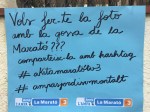 Vols fer-te la foto
amb la gossa de la
Marató???
comparteix-la amb hashtag
#akitamarató3
#amparjordivmontalt
La Marató 3
La Marató 3